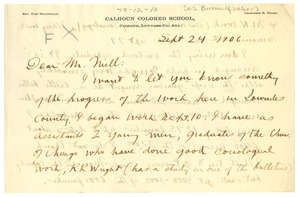 CALHOUN COLORED SCHOOL,
CALHOUN, LOWNDES CO. ALA.
F X
Sept 24 1906
Dear Mr. Neill:
I want to let you know something
of the progress of the work here in Lowndes
County. I began work Sept 10. I have as
assistants 2 young men, graduates of the Univ.
of Chicago who have done good sociological
work, R.R. Wright (has a study in one of the bulletins